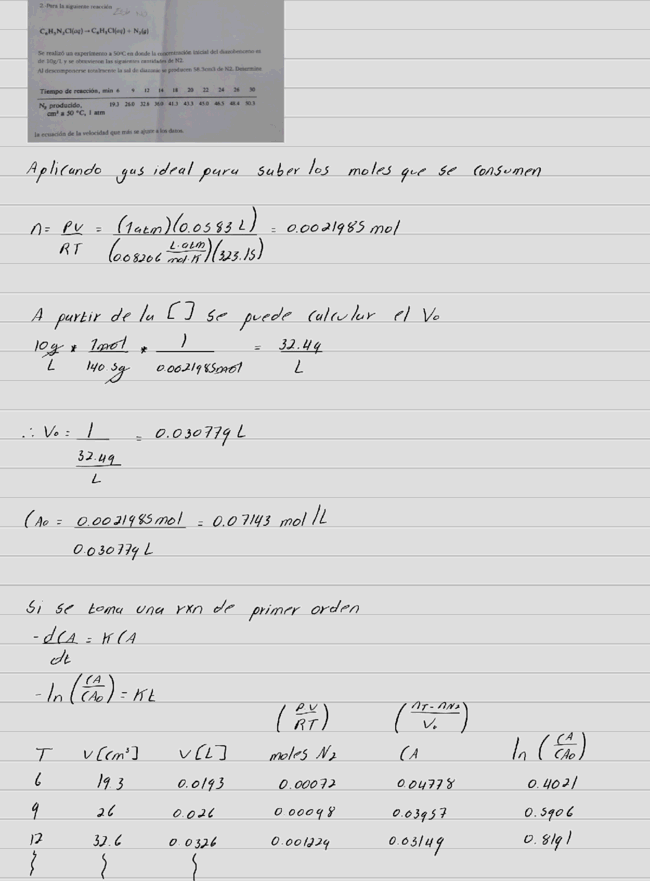 2. Para la siguiente reacción
C₆H₅N₂Cl(aq) → C₆H₅Cl(aq) + N₂(g)
Se realizó un experimento a 50°C en donde la concentración inicial del
de 10g/L y se obtuvieron las siguientes cantidades de N2.
Al descomponerse totalmente la sal de diazonio se producen 58.3cm3 de N2. Determine
Tiempo de reacción, min 6 9 12 14 18 20 22 24 26 30
N₂ producido, 19.3 26.0 32.6 36.0 41.3 43.3 45.0 46.5 48.4 50.3
cm³ a 50 °C, 1 atm
la ecuación de la velocidad que más se ajuste a los datos.
Aplicando gas ideal para saber los moles que se consumen
n = PV/RT = (1atm)(0.0583 L) / (008206 L·atm/mol·K)(323.15) = 0.0021985 mol
A partir de la [] se puede calcular el V₀
10g/L * 1mol/140 5g * 1/0.0021985mol = 32.49/L
∴ V₀ = 1/(32.49/L) = 0.030779 L
CA₀ = 0.0021985 mol / 0.030779 L = 0.07143 mol/L
Si se toma una rxn de primer orden
-dCA/dt = KCA
-ln(CA/CA₀) = Kt
(PV/RT) (nT - nN₂/V₀)
T V[cm³] V[L] moles N₂ CA ln(CA/CA₀)
6 19.3 0.0193 0.00072 0.04778 0.4021
9 26 0.026 0.00098 0.03957 0.5906
12 32.6 0.0326 0.001229 0.03149 0.8191